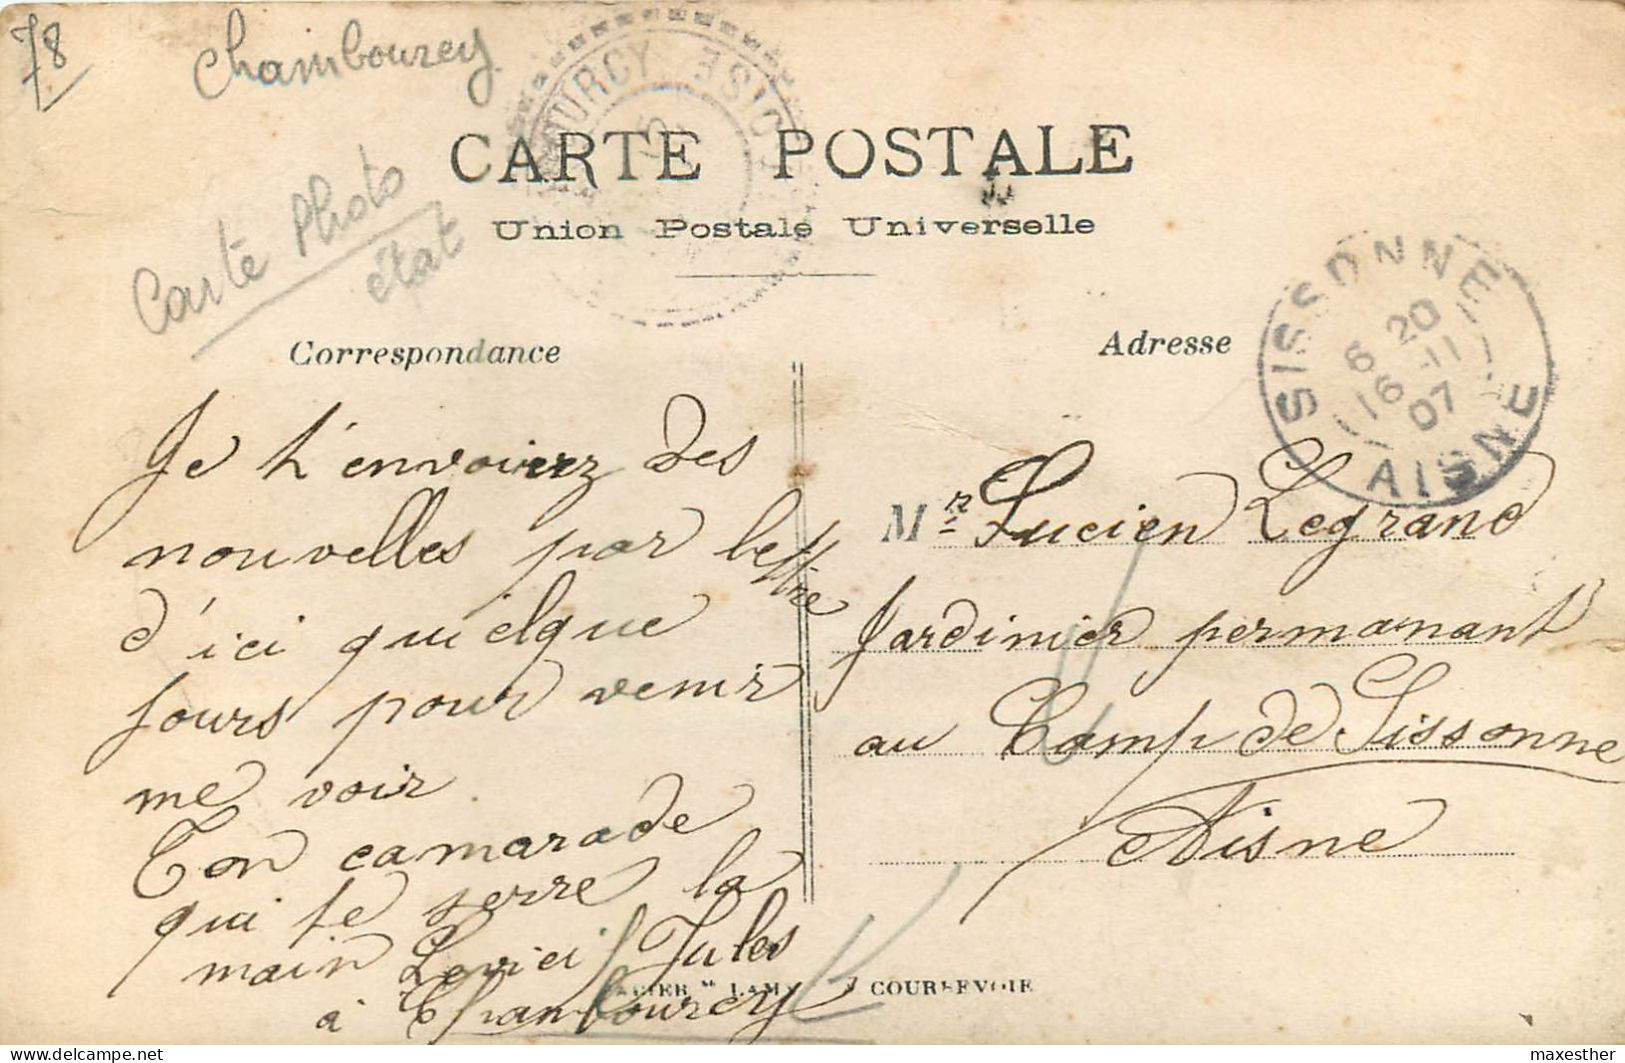 78
Chambourcy
Carte Photo
état
OURCY
OISE
CARTE POSTALE
Union Postale Universelle
SISSONNE
6 20
16 -11
07
AISNE
Correspondance
Adresse
Je t'envoirez des
nouvelles par lettre
d'ici quielque
jours pour venir
me voir
Ton camarade
qui te serre la
main Jules
à Chambourcy
Mr Lucien Legrand
Jardinier permanant
au Camp de Sissonne
Aisne
COURBEVOIE
maxesther